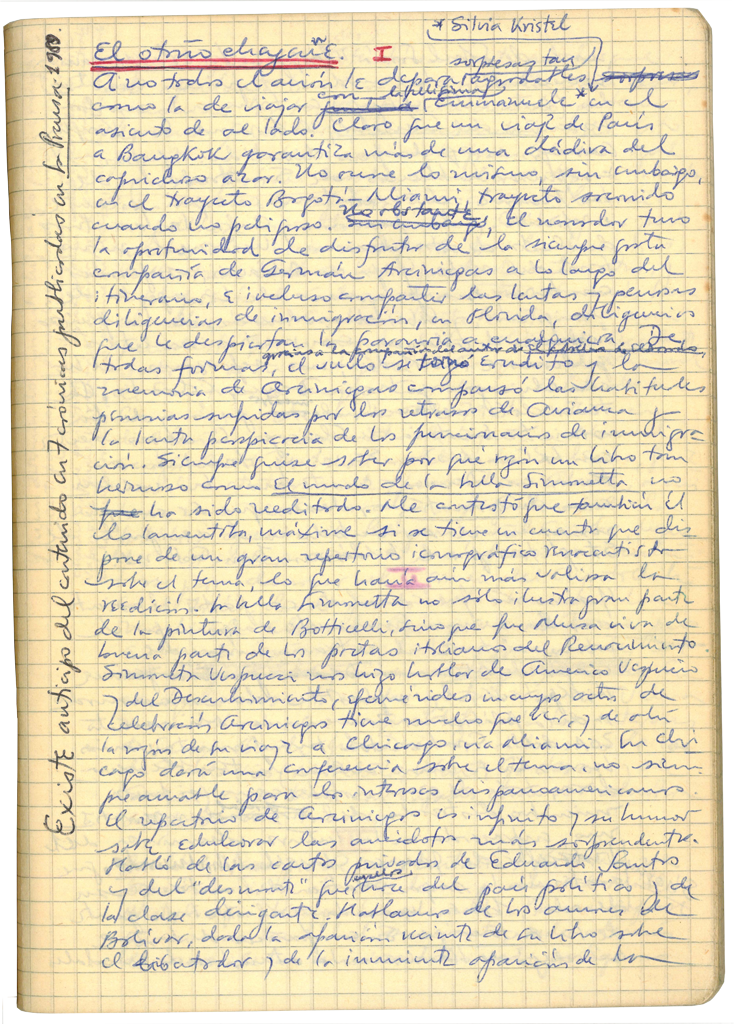 * Silvia Kristel
El otoño chagane. I
A no todos el avión le depara sorpresas tan agradables
como la de viajar con la bellísima "Emmanuele"* en el
asiento de al lado. Claro que un viaje de París
a Bangkok garantiza más de una dádiva del
caprichoso azar. No ocurre lo mismo, sin embargo,
en el trayecto Bogotá-Miami, trayecto socorrido
cuando no peligroso. No obstante, el narrador tuvo
la oportunidad de disfrutar de la siempre grata
compañía de Germán Arciniegas a lo largo del
itinerario, e incluso compartir las lentas y penosas
diligencias de inmigración, en Florida, diligencias
que le despiertan la paranoia a cualquiera. De
todas formas, el vuelo se tornó erudito y la
memoria de Arciniegas compensó las habituales
penurias sufridas por los retrasos de Avianca y
la lenta perspicacia de los funcionarios de inmigra-
ción. Siempre quise saber por qué razón un libro tan
hermoso como El mundo de la bella Simonetta no
ha sido reeditado. Me contestó que también él
lo lamentaba, máxime si se tiene en cuenta que dis-
pone de un gran repertorio iconográfico renacentista
sobre el tema, lo que haría aún más valiosa la
reedición. La bella Simonetta no sólo ilustra gran parte
de la pintura de Botticelli, sino que fue Musa viva de
buena parte de los poetas italianos del Renacimiento.
Simonetta Vespucci nos hizo hablar de Americo Vespucio
y del Descubrimiento, efemérides en cuyos actos de
celebración Arciniegas tiene mucho que ver, y de ahí
la razón de su viaje a Chicago, vía Miami. En Chi-
cago dará una conferencia sobre el tema, no siem-
pre amable para los intereses hispanoamericanos.
El repertorio de Arciniegas es infinito y su humor
sabe edulcorar las anécdotas más sorprendentes.
Habló de las cartas privadas de Eduardo Santos
y del "desmonte" del país político y de
la clase dirigente. Hablamos de los amores de
Bolívar, dada la aparición reciente de su libro sobre
el Libertador y de la inminente aparición de la
Existe anticipo del contenido en 7 crónicas publicadas en La Prensa-1989.